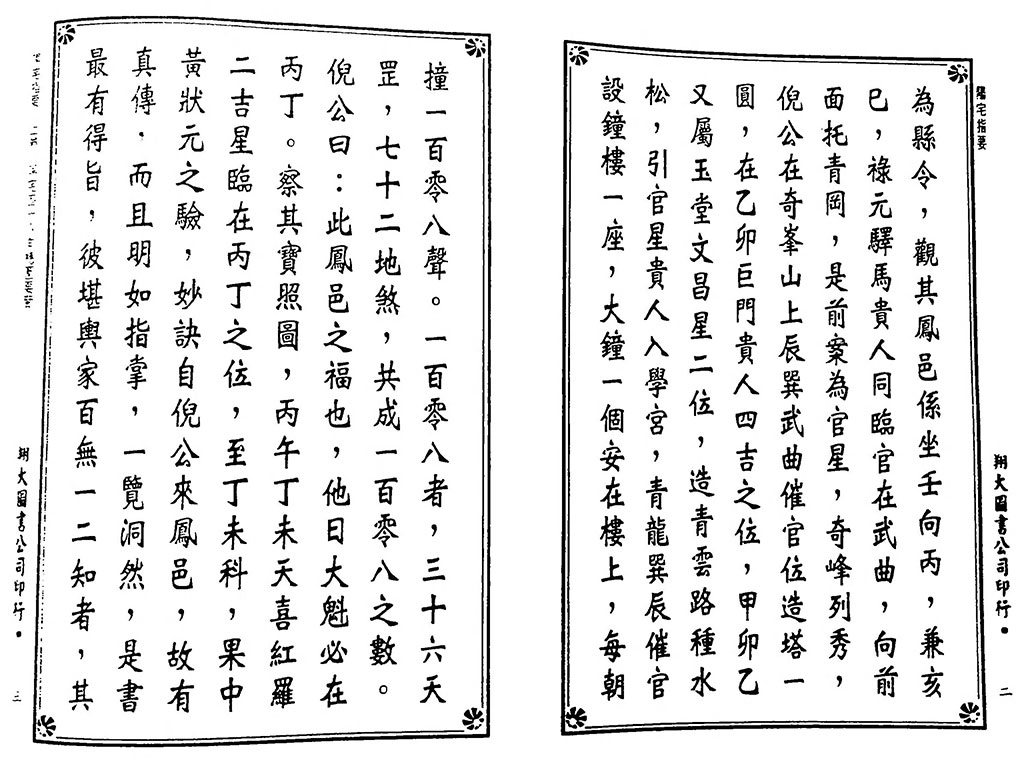 陽宅指要
為縣令，觀其鳳邑係坐壬向丙，兼亥
巳，祿元驛馬貴人同臨官在武曲，向前
面托青岡，是前案為官星，奇峰列秀，
倪公在奇峯山上辰巽武曲催官位造塔一
圓，在乙卯巨門貴人四吉之位，甲卯乙
又屬玉堂文昌星二位，造青雲路種水
松，引官星貴人入學宮，青龍巽辰催官
設鐘樓一座，大鐘一個安在樓上，每朝
翔大圖書公司印行•
二
撞一百零八聲。一百零八者，三十六天
罡，七十二地煞，共成一百零八之數。
倪公曰：此鳳邑之福也，他日大魁必在
丙丁。察其寶照圖，丙午丁未天喜紅羅
二吉星臨在丙丁之位，至丁未科，果中
黃狀元之驗，妙訣自倪公來鳳邑，故有
真傳．而且明如指掌，一覽洞然，是書
最有得旨，彼堪輿家百無一二知者，其
翔大圖書公司印行•
三